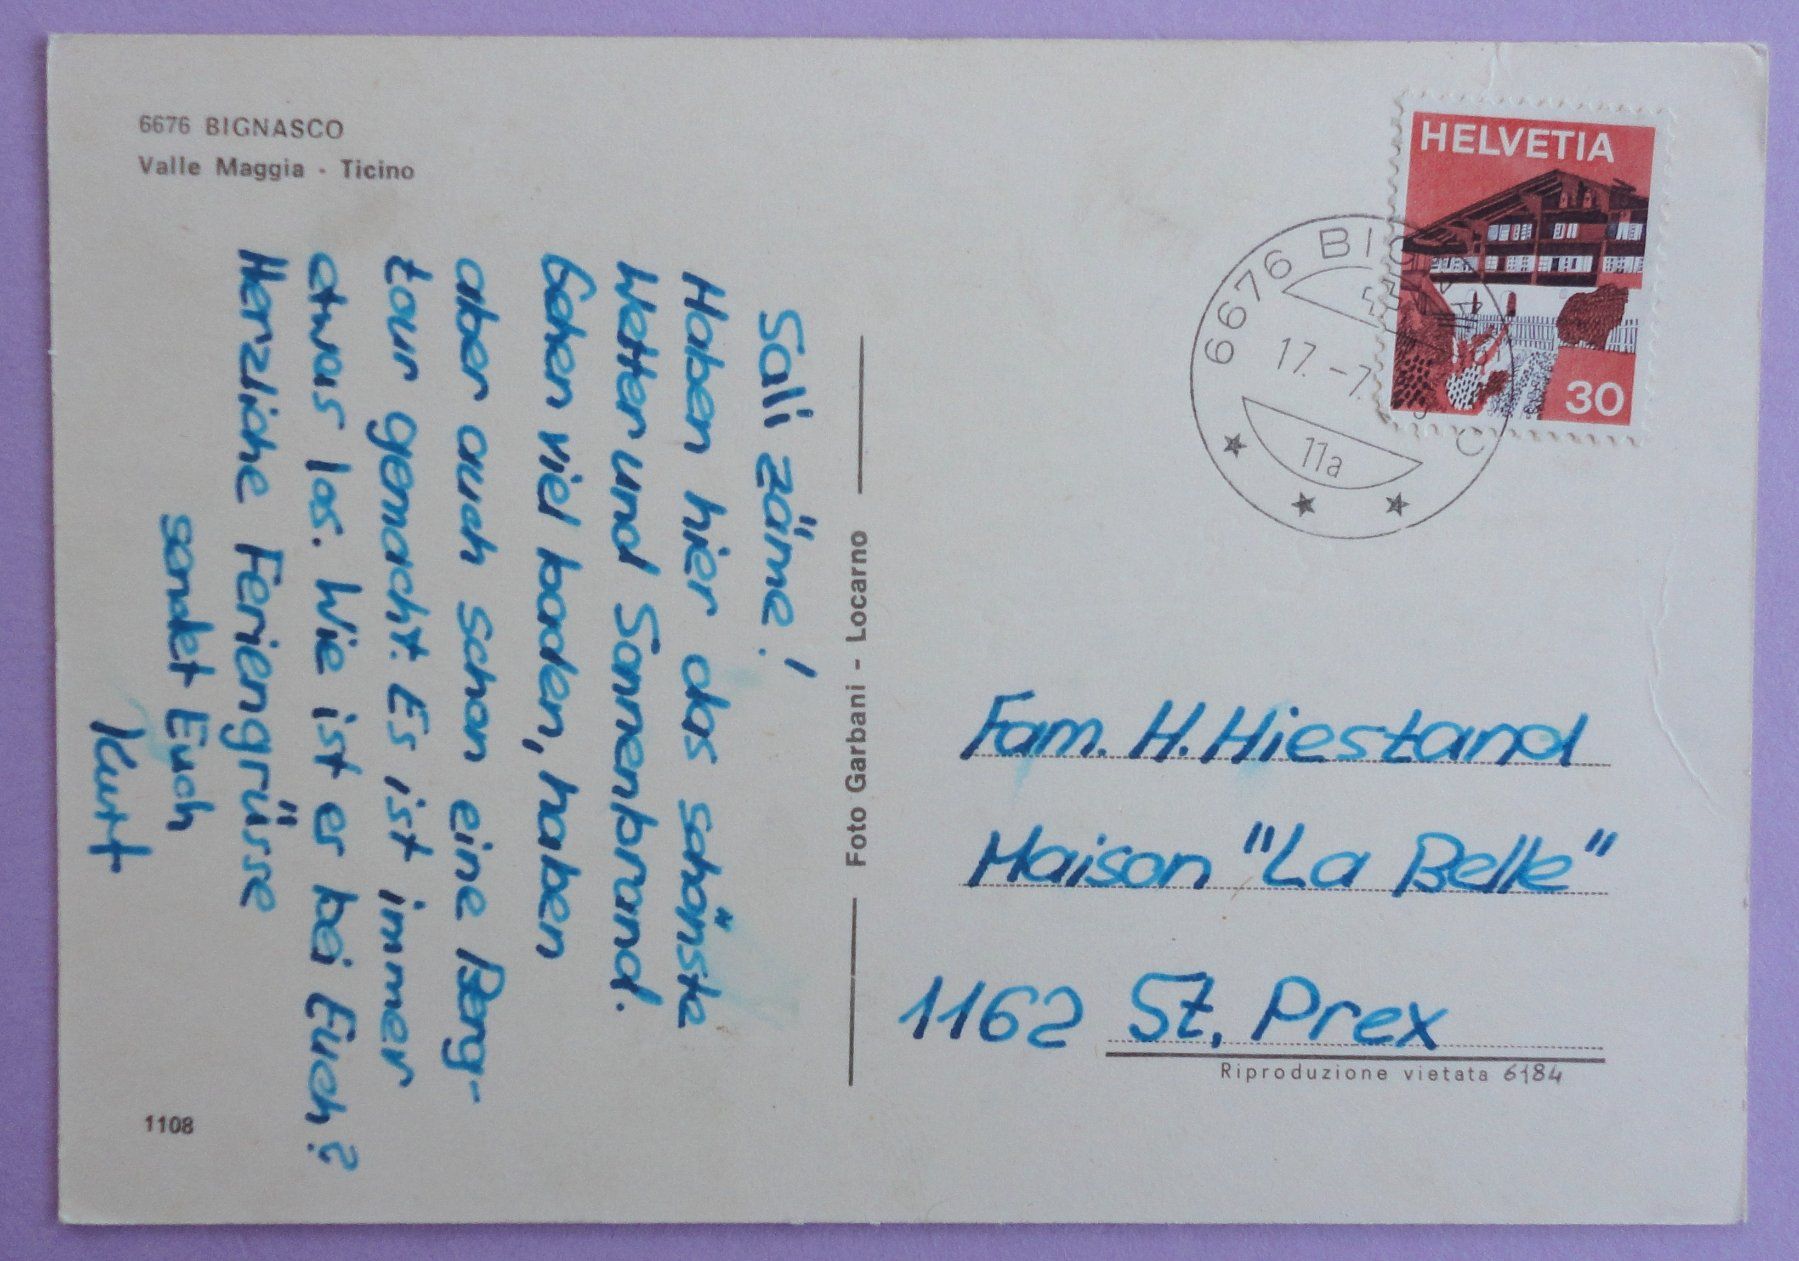 6676 BIGNASCO
Valle Maggia · Ticino
Sali zäme!
Haben hier das schönste
Wetter und Sonnenbrand.
Gehen viel baden, haben
aber auch schon eine Berg-
tour gemacht. Es ist immer
etwas los. Wie ist es bei Euch?
Herzliche Feriengrüsse
sendet Euch
Kurt
1108
Foto Garbani - Locarno
HELVETIA
30
6676
17.-7.
11a
Fam. H. Hiestand
Maison "La Belle"
1162 St. Prex
Riproduzione vietata 6184